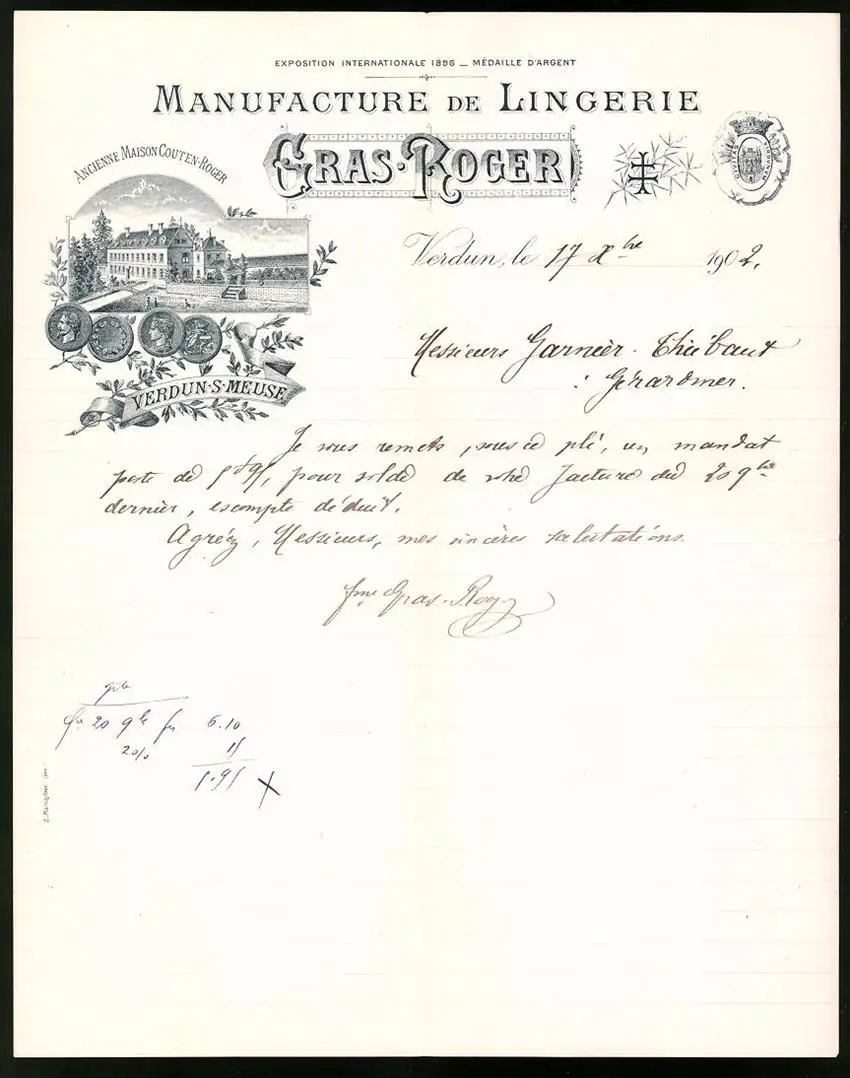 EXPOSITION INTERNATIONALE 1896 _ MÉDAILLE D'ARGENT
MANUFACTURE DE LINGERIE
ANCIENNE MAISON COUTEN-ROGER
GRAS-ROGER
Verdun, le 17 Xbre 1902.
Messieurs Garnier-Thiébaut
à Gérardmer.
VERDUN-S-MEUSE
Je vous remets, sous ce pli, un mandat
poste de 5f95, pour solde de votre facture du 20 9bre
dernier, escompte déduit.
Agréez, Messieurs, mes sincères salutations.
Gras-Roger
20 9bre 6.10
2%
5.95 X